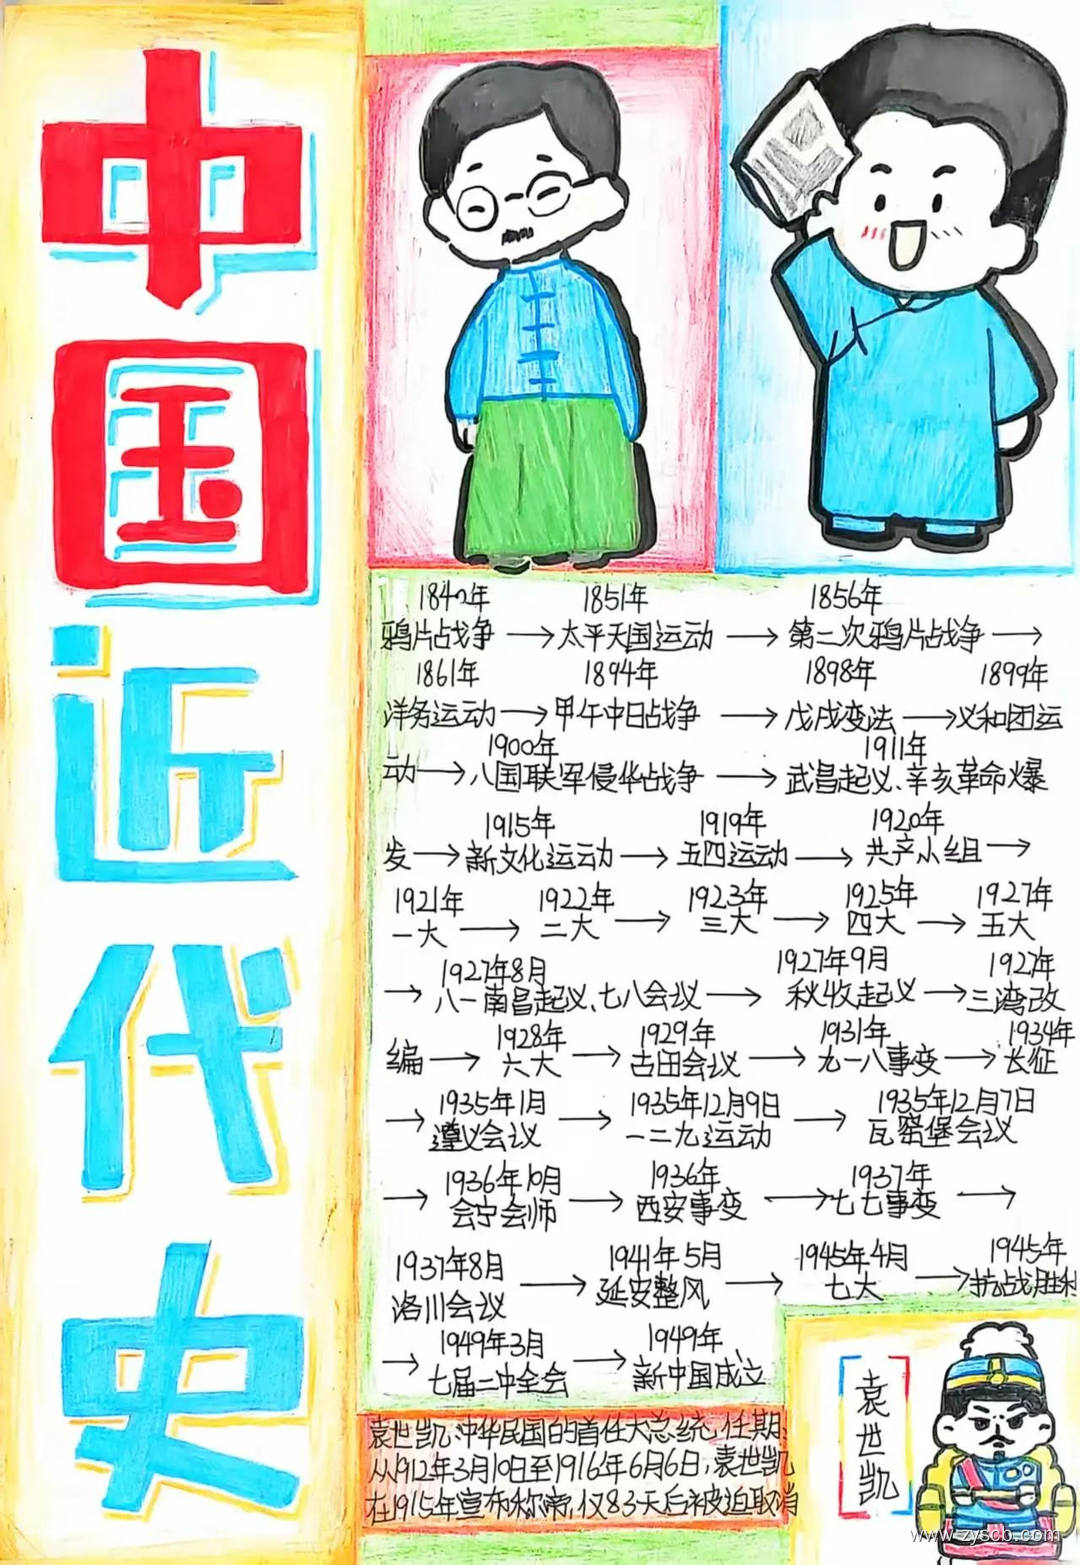 中国近代史
1840年 1851年 1856年
鸦片战争 → 太平天国运动 → 第二次鸦片战争 →
1861年 1894年 1898年 1899年
洋务运动 → 甲午中日战争 → 戊戌变法 → 义和团运
1900年 1911年
动 → 八国联军侵华战争 → 武昌起义、辛亥革命爆
1915年 1919年 1920年
发 → 新文化运动 → 五四运动 → 共产小组 →
1921年 1922年 1923年 1925年 1927年
一大 → 二大 → 三大 → 四大 → 五大
1927年8月 1927年9月 1927年
→ 八一南昌起义、七八会议 → 秋收起义 → 三湾改
1928年 1929年 1931年 1934年
编 → 六大 → 古田会议 → 九一八事变 → 长征
1935年1月 1935年12月9日 1935年12月7日
→ 遵义会议 → 一二九运动 → 瓦窑堡会议
1936年10月 1936年 1937年
→ 会宁会师 → 西安事变 → 七七事变 →
1937年8月 1941年5月 1945年4月 1945年
洛川会议 → 延安整风 → 七大 → 抗战胜利
1949年3月 1949年
→ 七届二中全会 → 新中国成立
袁世凯
袁世凯:中华民国的首任大总统,任期:
从1912年3月10日至1916年6月6日,袁世凯
在1915年宣布称帝,仅83天后被迫取消
www.zyscb.com